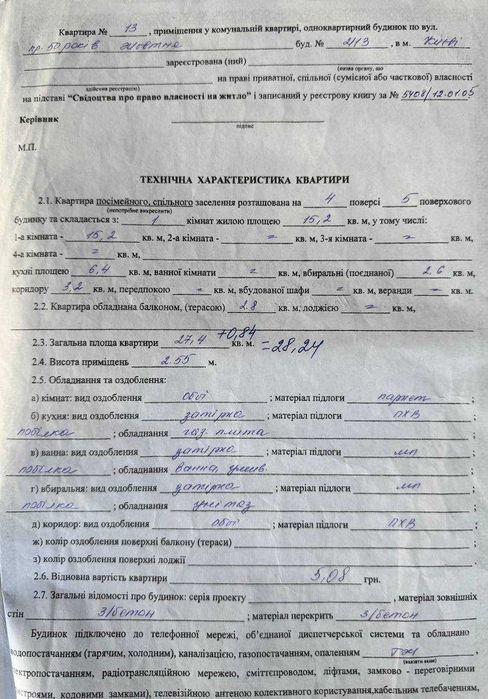 Квартира № 13 , приміщення у комунальній квартирі, одноквартирний будинок по вул.
пр. 50 років Жовтня буд. № 2/13 , в м. Києві
зареєстрована (ний)
(назва органу, що
на праві приватної, спільної (сумісної або часткової) власності
здійснив реєстрацію)
на підставі “Свідоцтва про право власності на житло” і записаний у реєстрову книгу за № 5408/12.01.05
Керівник
підпис
М.П.
ТЕХНІЧНА ХАРАКТЕРИСТИКА КВАРТИРИ
2.1. Квартира посімейного, спільного заселення розташована на 4 поверсі 5 поверхового
(непотрібне викреслити)
будинку та складається з: 1 кімнат жилою площею 15,2 кв. м, у тому числі:
1-а кімната - 15,2 кв. м, 2-а кімната - – кв. м, 3-я кімната - – кв. м,
4-а кімната - – кв. м,
кухні площею 6,4 кв. м, ванної кімнати – кв. м, вбиральні (поєднаної) 2.6 кв. м,
коридору 3,2 кв. м, передпокою – кв. м, вбудованої шафи – кв. м, веранди – кв. м.
2.2. Квартира обладнана балконом, (терасою) 2.8 кв. м, лоджією – кв. м,
2.3. Загальна площа квартири 27,4 +0,84 кв. м. =28,24
2.4. Висота приміщень 2.55 м.
2.5. Обладнання та оздоблення:
а) кімнат: вид оздоблення обої ; матеріал підлоги паркет
б) кухня: вид оздоблення затірка ; матеріал підлоги ПХВ
побілка ; обладнання газ. плита
в) ванна: вид оздоблення затірка ; матеріал підлоги мп
побілка ; обладнання ванна,
г) вбиральня: вид оздоблення затірка ; матеріал підлоги мп
побілка ; обладнання унітаз
д) коридор: вид оздоблення обої ; матеріал підлоги ПХВ
ж) колір оздоблення поверхні балкону (тераси) ;
з) колір оздоблення поверхні лоджії
2.6. Відновна вартість квартири 5,08 грн.
2.7. Загальні відомості про будинок: серія проекту , матеріал зовнішніх
стін З/бетон ; матеріал перекрить З/бетон
Будинок підключено до телефонної мережі, об’єднаної диспетчерської системи та обладнано
водопостачанням (гарячим, холодним), каналізацією, газопостачанням, опаленням
(вказати яким)
електропостачанням, радіотрансляційною мережею, сміттєпроводом, ліфтами, замково - переговорними
пристроями, кодовими замками), телевізійною антеною колективного користування, кабельним телебаченням,